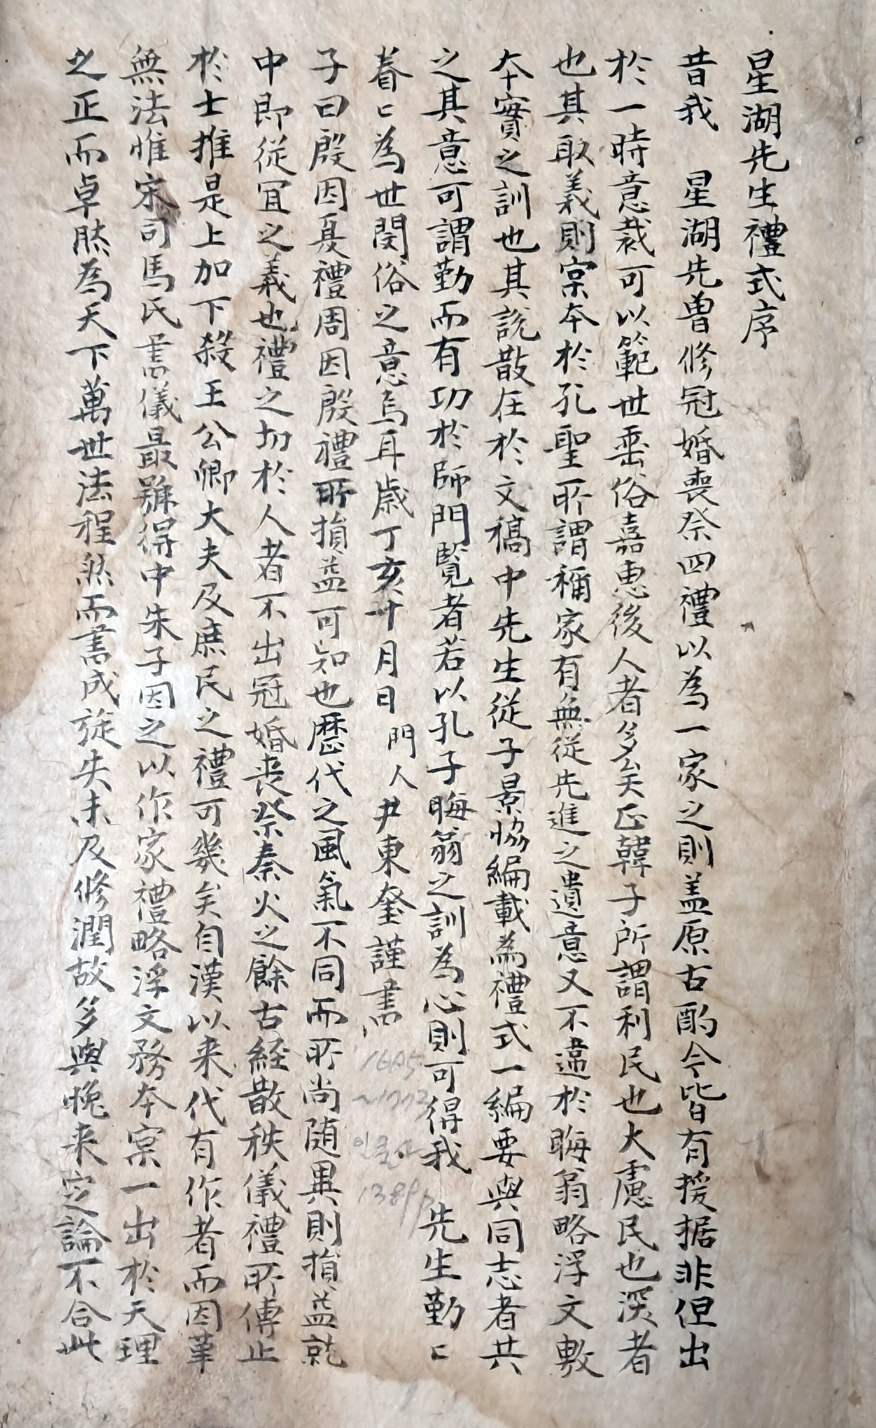 星湖先生禮式序
昔我 星湖先曽修冠婚喪祭四禮以為一家之則盖原古酌今皆有援据非但出
於一時意裁可以範世垂俗嘉惠後人者多矣正韓子所謂利民也大慮民也深者
也其取義則宲夲於孔聖所謂稱家有無從先進之遺意又不違於晦翁略浮文敷
夲實之訓也其說散在於文稿中先生從子景恊編載為禮式一編要與同志者共
之其意可謂勤而有功於師門覧者若以孔子晦翁之訓為心則可得我 先生勤〻
眷〻為世閔俗之意焉耳歲丁亥十月日 門人尹東奎謹書
子曰殷因夏禮周因殷禮所損益可知也歷代之風氣不同而所尚随異則損益就
中即從冝之義也禮之切於人者不出冠婚喪祭秦火之餘古経散秩儀禮所傳止
於士推是上加下殺王公卿大夫及庶民之禮可幾矣自漢以来代有作者而因革
無法惟宋司馬氏書儀最號得中朱子因之以作家禮略浮文務夲宲一出於天理
之正而卓然為天下萬世法程然而書成旋失未及修潤故多與晚来定論不合此
1389